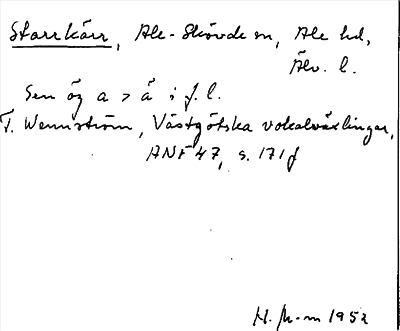 Starrkärr, Ale-Skövde sn, Ale hd,
Älv. l.
Sen ög a > å i f. l.
T. Wennström, Västgötska vokalväxlingar,
ANF 47, s. 171 f
H. 1952